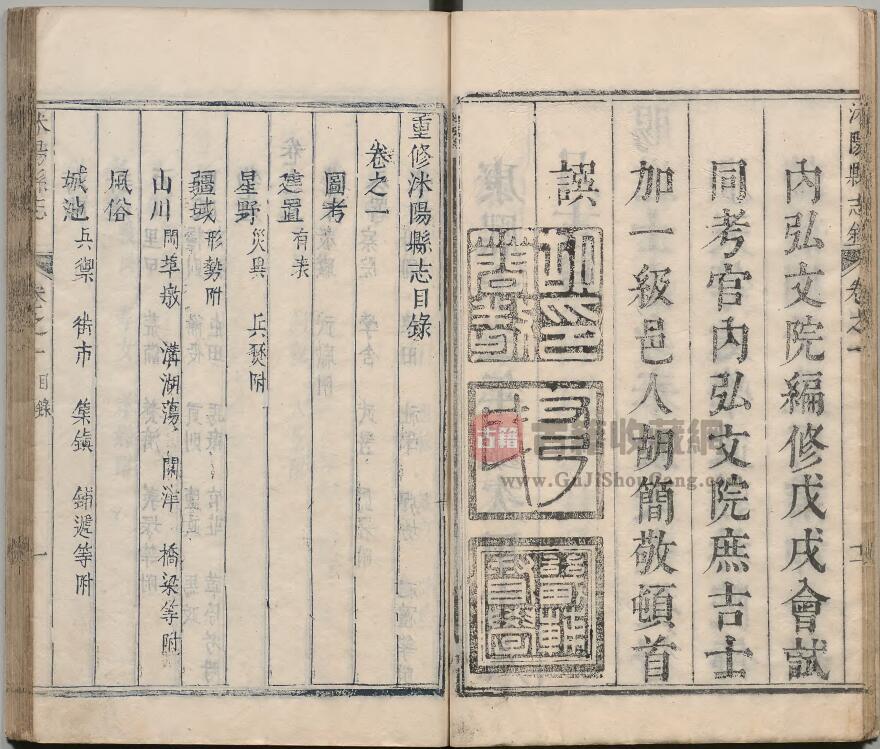 內弘文院編修戊戌會試
同考官內弘文院庶吉士
加一級邑人胡簡敬頓首
譔
沭陽縣志 卷之一
重修沭陽縣志目錄
卷之一
圖考
建置 有表
星野 災異 兵燹附
疆域 形勢附
山川 溝湖蕩 關津 橋梁等附
風俗
城池 兵禦 街市 集鎮 鋪遞等附
沭陽縣志 卷之一 目錄 一
古籍
古籍收藏網
www.GuJiShouCang.com